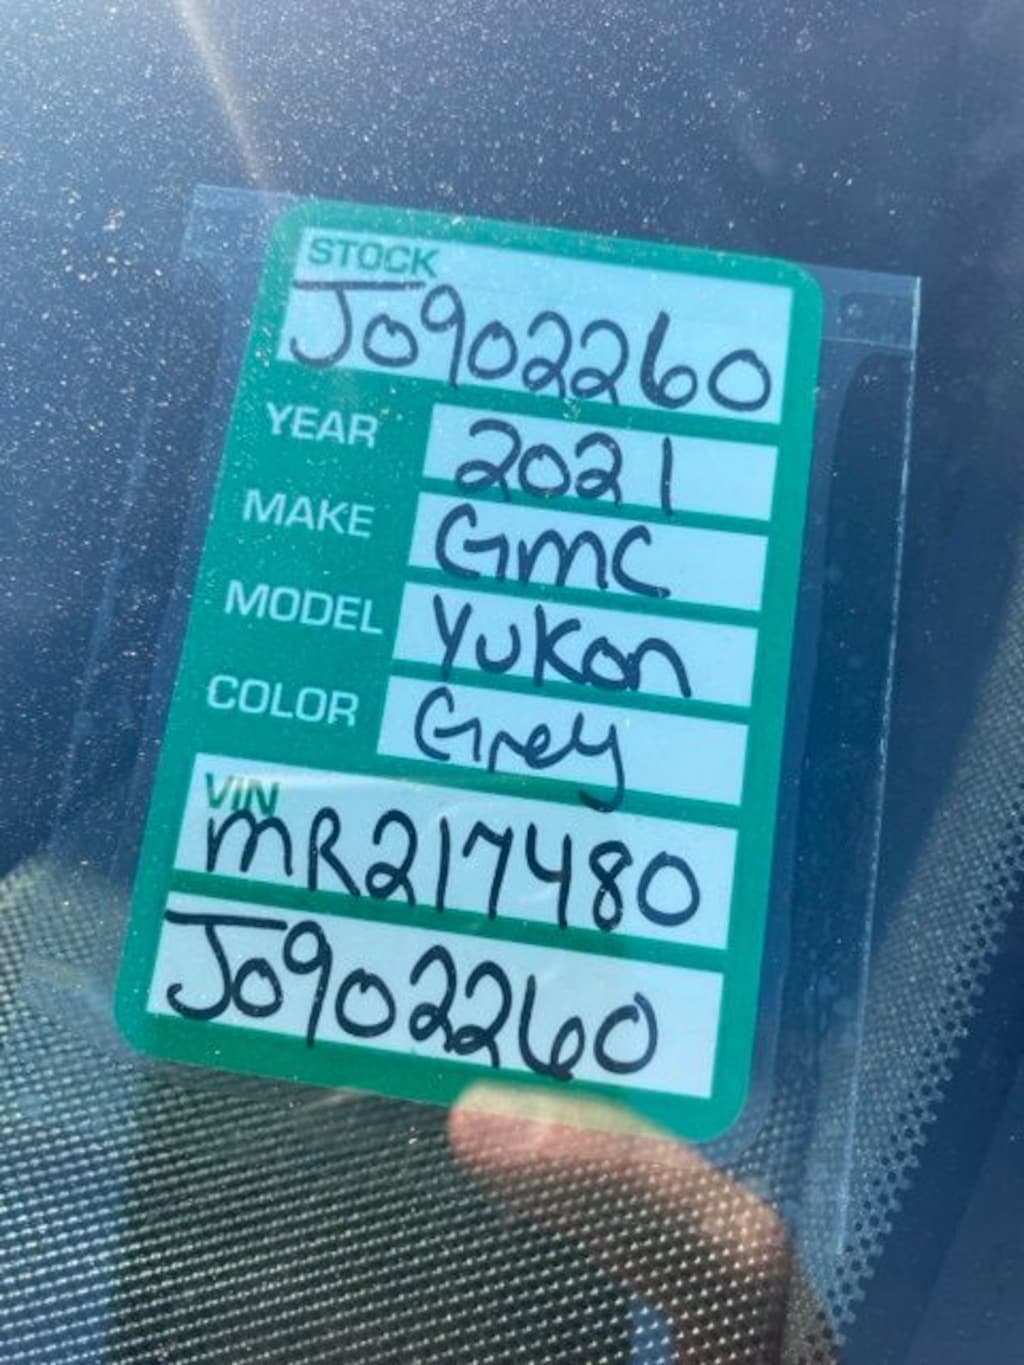 STOCK
J0902260
YEAR 2021
MAKE GMC
MODEL Yukon
COLOR Grey
VIN
MR217480
J0902260